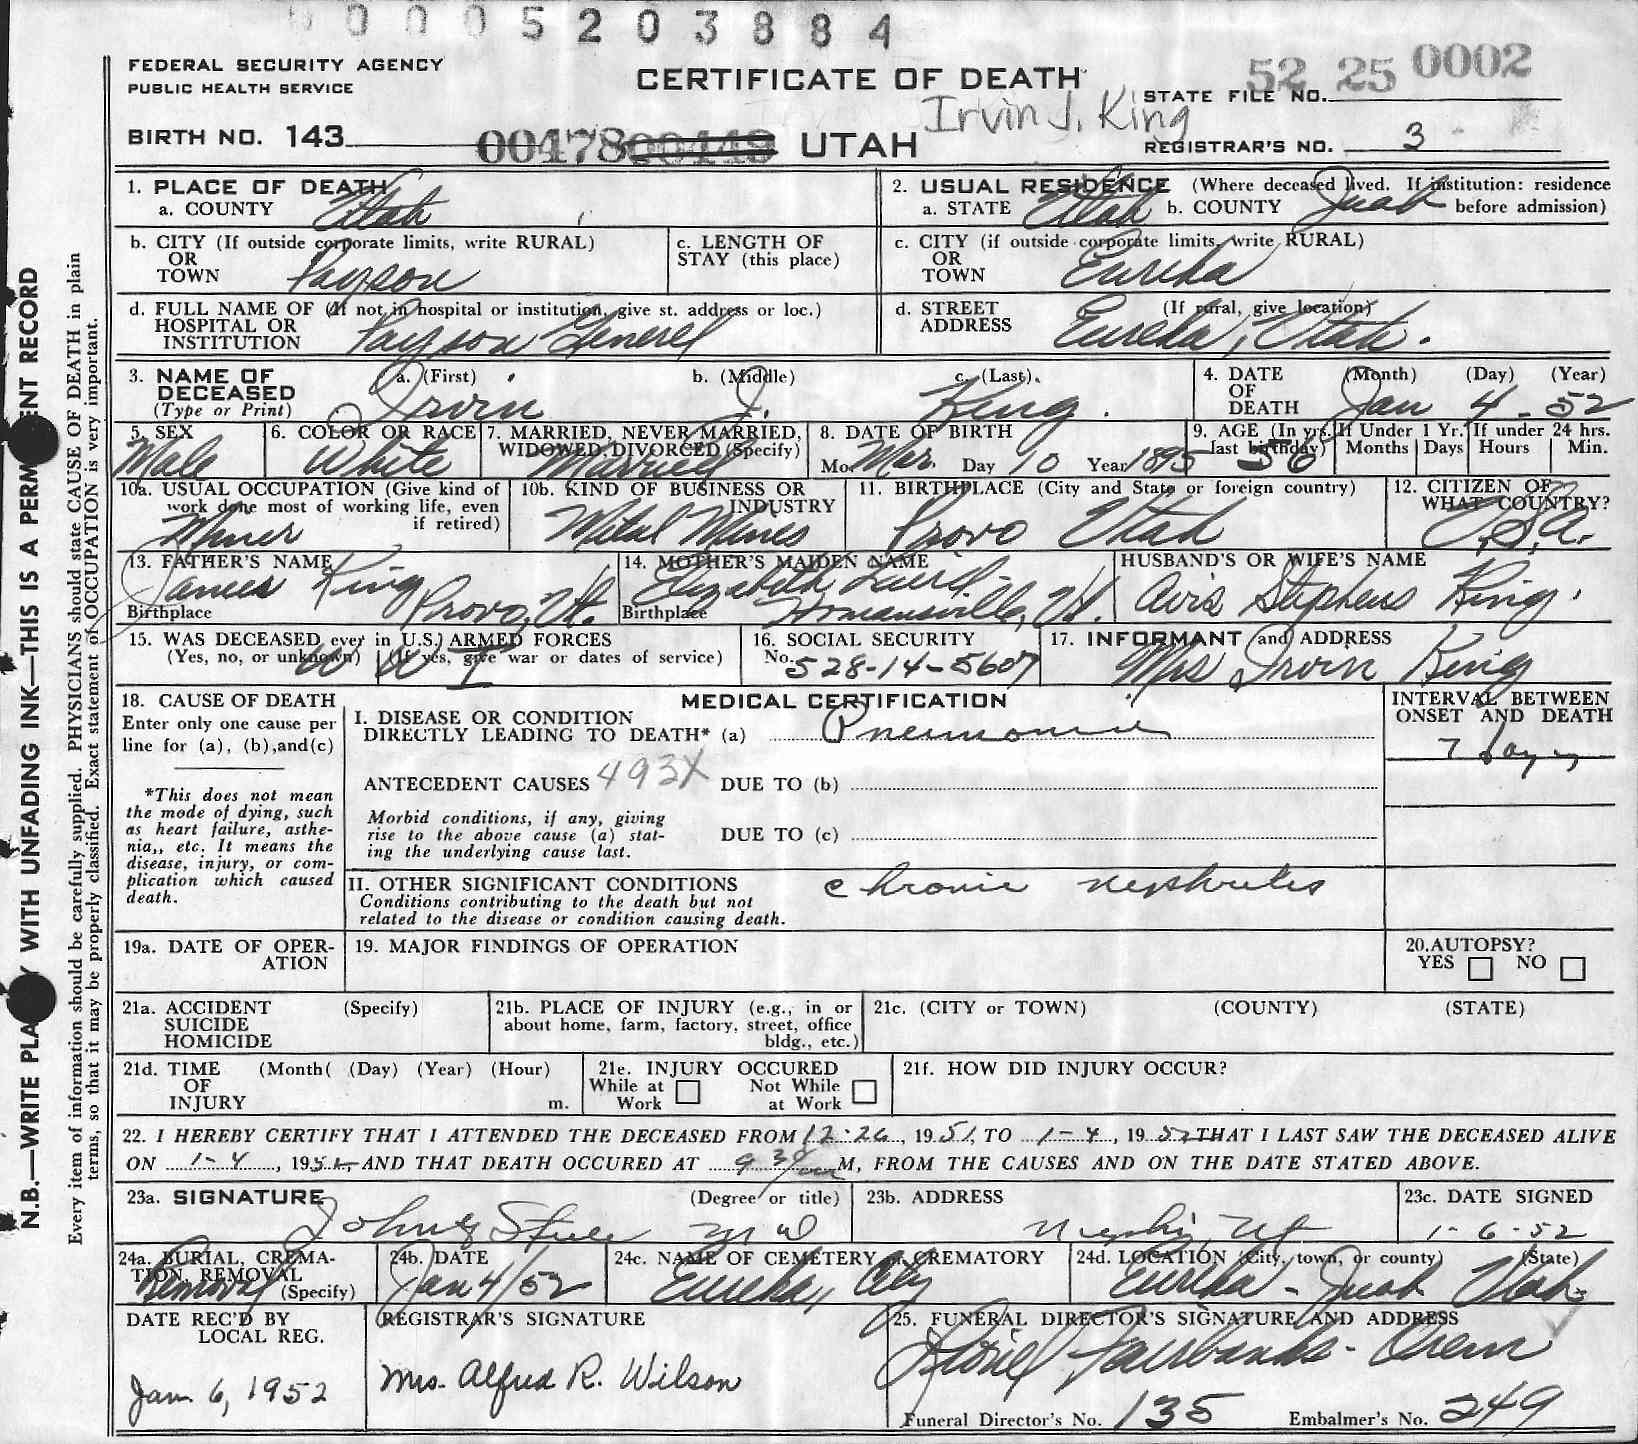 0 0 0 5 2 0 3 8 8 4
FEDERAL SECURITY AGENCY
PUBLIC HEALTH SERVICE
CERTIFICATE OF DEATH
52 25 0002
STATE FILE NO.
Irvin J. King
BIRTH NO. 143
00478 00449 UTAH
REGISTRAR'S NO. 3
N.B.—WRITE PLA Y WITH UNFADING INK—THIS IS A PERM ENT RECORD
Every item of information should be carefully supplied. PHYSICIANS should state CAUSE OF DEATH in plain
terms, so that it may be properly classified. Exact statement of OCCUPATION is very important.
1. PLACE OF DEATH
a. COUNTY Utah
2. USUAL RESIDENCE (Where deceased lived. If institution: residence
a. STATE Utah b. COUNTY Juab before admission)
b. CITY (If outside corporate limits, write RURAL)
OR
TOWN Payson
c. LENGTH OF
STAY (this place)
c. CITY (if outside corporate limits, write RURAL)
OR
TOWN Eureka
d. FULL NAME OF (If not in hospital or institution, give st. address or loc.)
HOSPITAL OR
INSTITUTION Payson Generel
d. STREET (If rural, give location)
ADDRESS Eureka, Utah.
3. NAME OF DECEASED
(Type or Print)
a. (First) Irvin
b. (Middle) J.
c. (Last). King.
4. DATE OF DEATH
(Month) (Day) (Year)
Jan 4 - 52
5. SEX
Male
6. COLOR OR RACE
White
7. MARRIED, NEVER MARRIED,
WIDOWED, DIVORCED (Specify)
Married
8. DATE OF BIRTH
Mo. Mar. Day 10 Year 1895
9. AGE (In yrs. last birthday) 56
If Under 1 Yr. Months Days
If under 24 hrs. Hours Min.
10a. USUAL OCCUPATION (Give kind of
work done most of working life, even
if retired)
Miner
10b. KIND OF BUSINESS OR
INDUSTRY
Metal Mines
11. BIRTHPLACE (City and State or foreign country)
Provo Utah
12. CITIZEN OF
WHAT COUNTRY?
U.S.A.
13. FATHER'S NAME
James King
Birthplace Provo, Ut.
14. MOTHER'S MAIDEN NAME
Elizabeth Laird
Birthplace Homansville, Ut.
HUSBAND'S OR WIFE'S NAME
Avis Stephens King.
15. WAS DECEASED ever in U.S. ARMED FORCES
(Yes, no, or unknown) (If yes, give war or dates of service)
W W I
16. SOCIAL SECURITY
No. 528-14-5607
17. INFORMANT and ADDRESS
Mrs Irvin King
18. CAUSE OF DEATH
Enter only one cause per
line for (a), (b),and(c)
*This does not mean
the mode of dying, such
as heart failure, asthe-
nia,, etc. It means the
disease, injury, or com-
plication which caused
death.
MEDICAL CERTIFICATION
I. DISEASE OR CONDITION
DIRECTLY LEADING TO DEATH* (a) Pneumonia
ANTECEDENT CAUSES 493X DUE TO (b)
Morbid conditions, if any, giving
rise to the above cause (a) stat-
ing the underlying cause last.
DUE TO (c)
II. OTHER SIGNIFICANT CONDITIONS
Conditions contributing to the death but not
related to the disease or condition causing death.
chronic nephritis
INTERVAL BETWEEN
ONSET AND DEATH
7 days
19a. DATE OF OPER-
ATION
19. MAJOR FINDINGS OF OPERATION
20.AUTOPSY?
YES NO
21a. ACCIDENT (Specify)
SUICIDE
HOMICIDE
21b. PLACE OF INJURY (e.g., in or
about home, farm, factory, street, office
bldg., etc.)
21c. (CITY or TOWN) (COUNTY) (STATE)
21d. TIME (Month( (Day) (Year) (Hour)
OF
INJURY m.
21e. INJURY OCCURED
While at Work Not While at Work
21f. HOW DID INJURY OCCUR?
22. I HEREBY CERTIFY THAT I ATTENDED THE DECEASED FROM 12-26, 1951, TO 1-4, 1952 THAT I LAST SAW THE DECEASED ALIVE
ON 1-4, 1952 AND THAT DEATH OCCURED AT 9 30 am M, FROM THE CAUSES AND ON THE DATE STATED ABOVE.
23a. SIGNATURE (Degree or title)
John G Steele M D
23b. ADDRESS
Nephi, Ut
23c. DATE SIGNED
1-6-52
24a. BURIAL, CREMA-
TION, REMOVAL
(Specify)
Removal
24b. DATE
Jan 4/52
24c. NAME OF CEMETERY or CREMATORY
Eureka, City
24d. LOCATION (City, town, or county) (State)
Eureka - Juab Utah
DATE REC'D BY
LOCAL REG.
Jan. 6, 1952
REGISTRAR'S SIGNATURE
Mrs. Alfred R. Wilson
25. FUNERAL DIRECTOR'S SIGNATURE AND ADDRESS
Fairbanks - Orem
Funeral Director's No. 135 Embalmer's No. 249